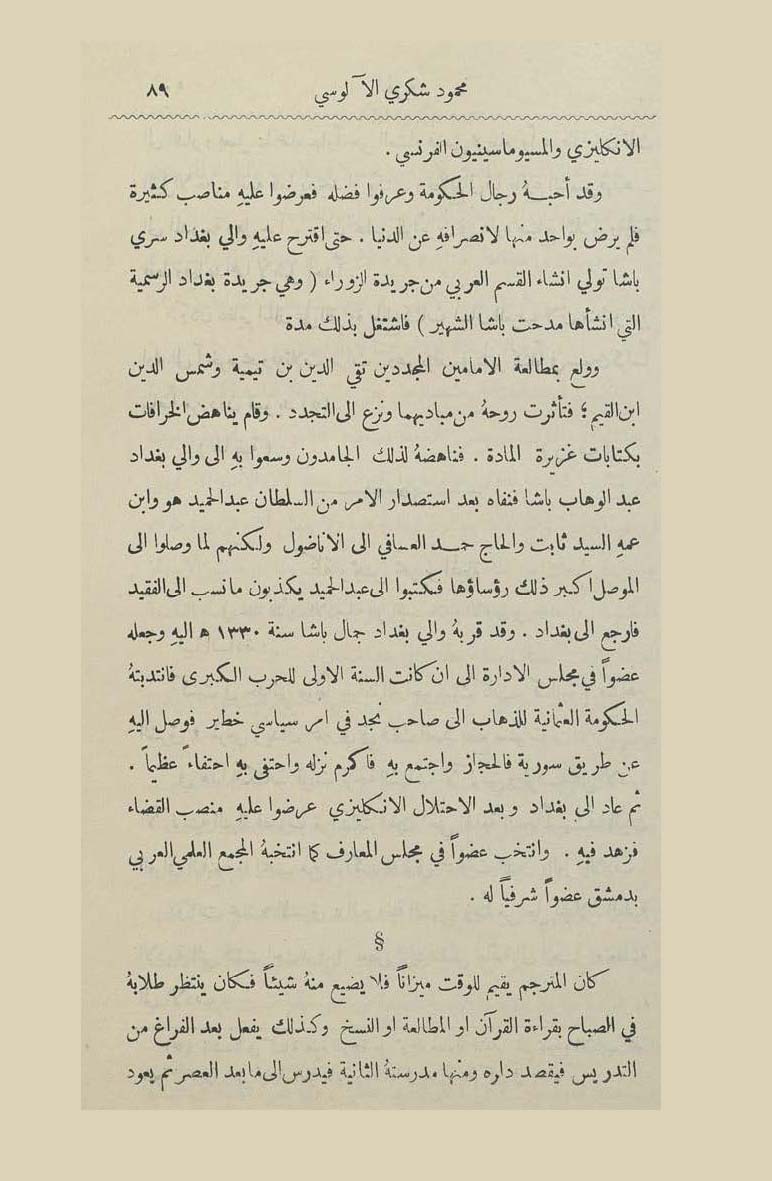 محمود شكري الآلوسي ٨٩
الانكليزي والمسيوماسينيون الفرنسي .
وقد أحبـــهُ رجال الحكومة وعرفوا فضله فعرضوا عليهِ مناصب كثيرة
فلم يرض بواحد منها لانصرافهِ عن الدنيا . حتى اقترح عليهِ والي بغداد سري
باشا تولي انشاء القسم العربي من جريدة الزوراء ( وهي جريدة بغداد الرسمية
التي انشأها مدحت باشا الشهير ) فاشتغل بذلك مدة
وولع بمطالعة الامامين المجددين تقي الدين بن تيمية وشمس الدين
ابن القيم ؛ فتأثرت روحهُ من مباديهما ونزع الى التجدد . وقام يناهض الخرافات
بكتابات غزيرة المادة . فناهضهُ لذلك الجامدون وسعوا بهِ الى والي بغداد
عبد الوهاب باشا فنفاه بعد استصدار الامر من السلطان عبدالحميد هو وابن
عمهِ السيد ثابت والحاج حمــد العسافي الى الاناضول ولكنهم لما وصلوا الى
الموصل اكبر ذلك رؤساؤها فكتبوا الى عبدالحميد يكذبون مانسب الى الفقيد
فارجع الى بغداد . وقد قربهُ والي بغداد جمال باشا سنة ١٣٣٠ ه اليهِ وجعله
عضواً في مجلس الادارة الى ان كانت السنة الاولى للحرب الكبرى فانتدبتهُ
الحكومة العثمانية للذهاب الى صاحب نجد في امر سياسي خطير فوصل اليهِ
عن طريق سورية فالحجاز واجتمع بهِ فاكرم نزله واحتفى بهِ احتفاءً عظيماً .
ثم عاد الى بغداد وبعد الاحتلال الانكليزي عرضوا عليهِ منصب القضاء
فزهد فيهِ . وانتخب عضواً في مجلس المعارف كما انتخبهُ المجمع العلمي العربي
بدمشق عضواً شرفياً له .
§
كان المترجم يقيم للوقت ميزاناً فلا يضيع منهُ شيئاً فكان ينتظر طلابهُ
في الصباح بقراءة القرآن او المطالعة او النسخ وكذلك يفعل بعد الفراغ من
التدريس فيقصد داره ومنها مدرستهُ الثانية فيدرس الى مابعد العصر ثم يعود